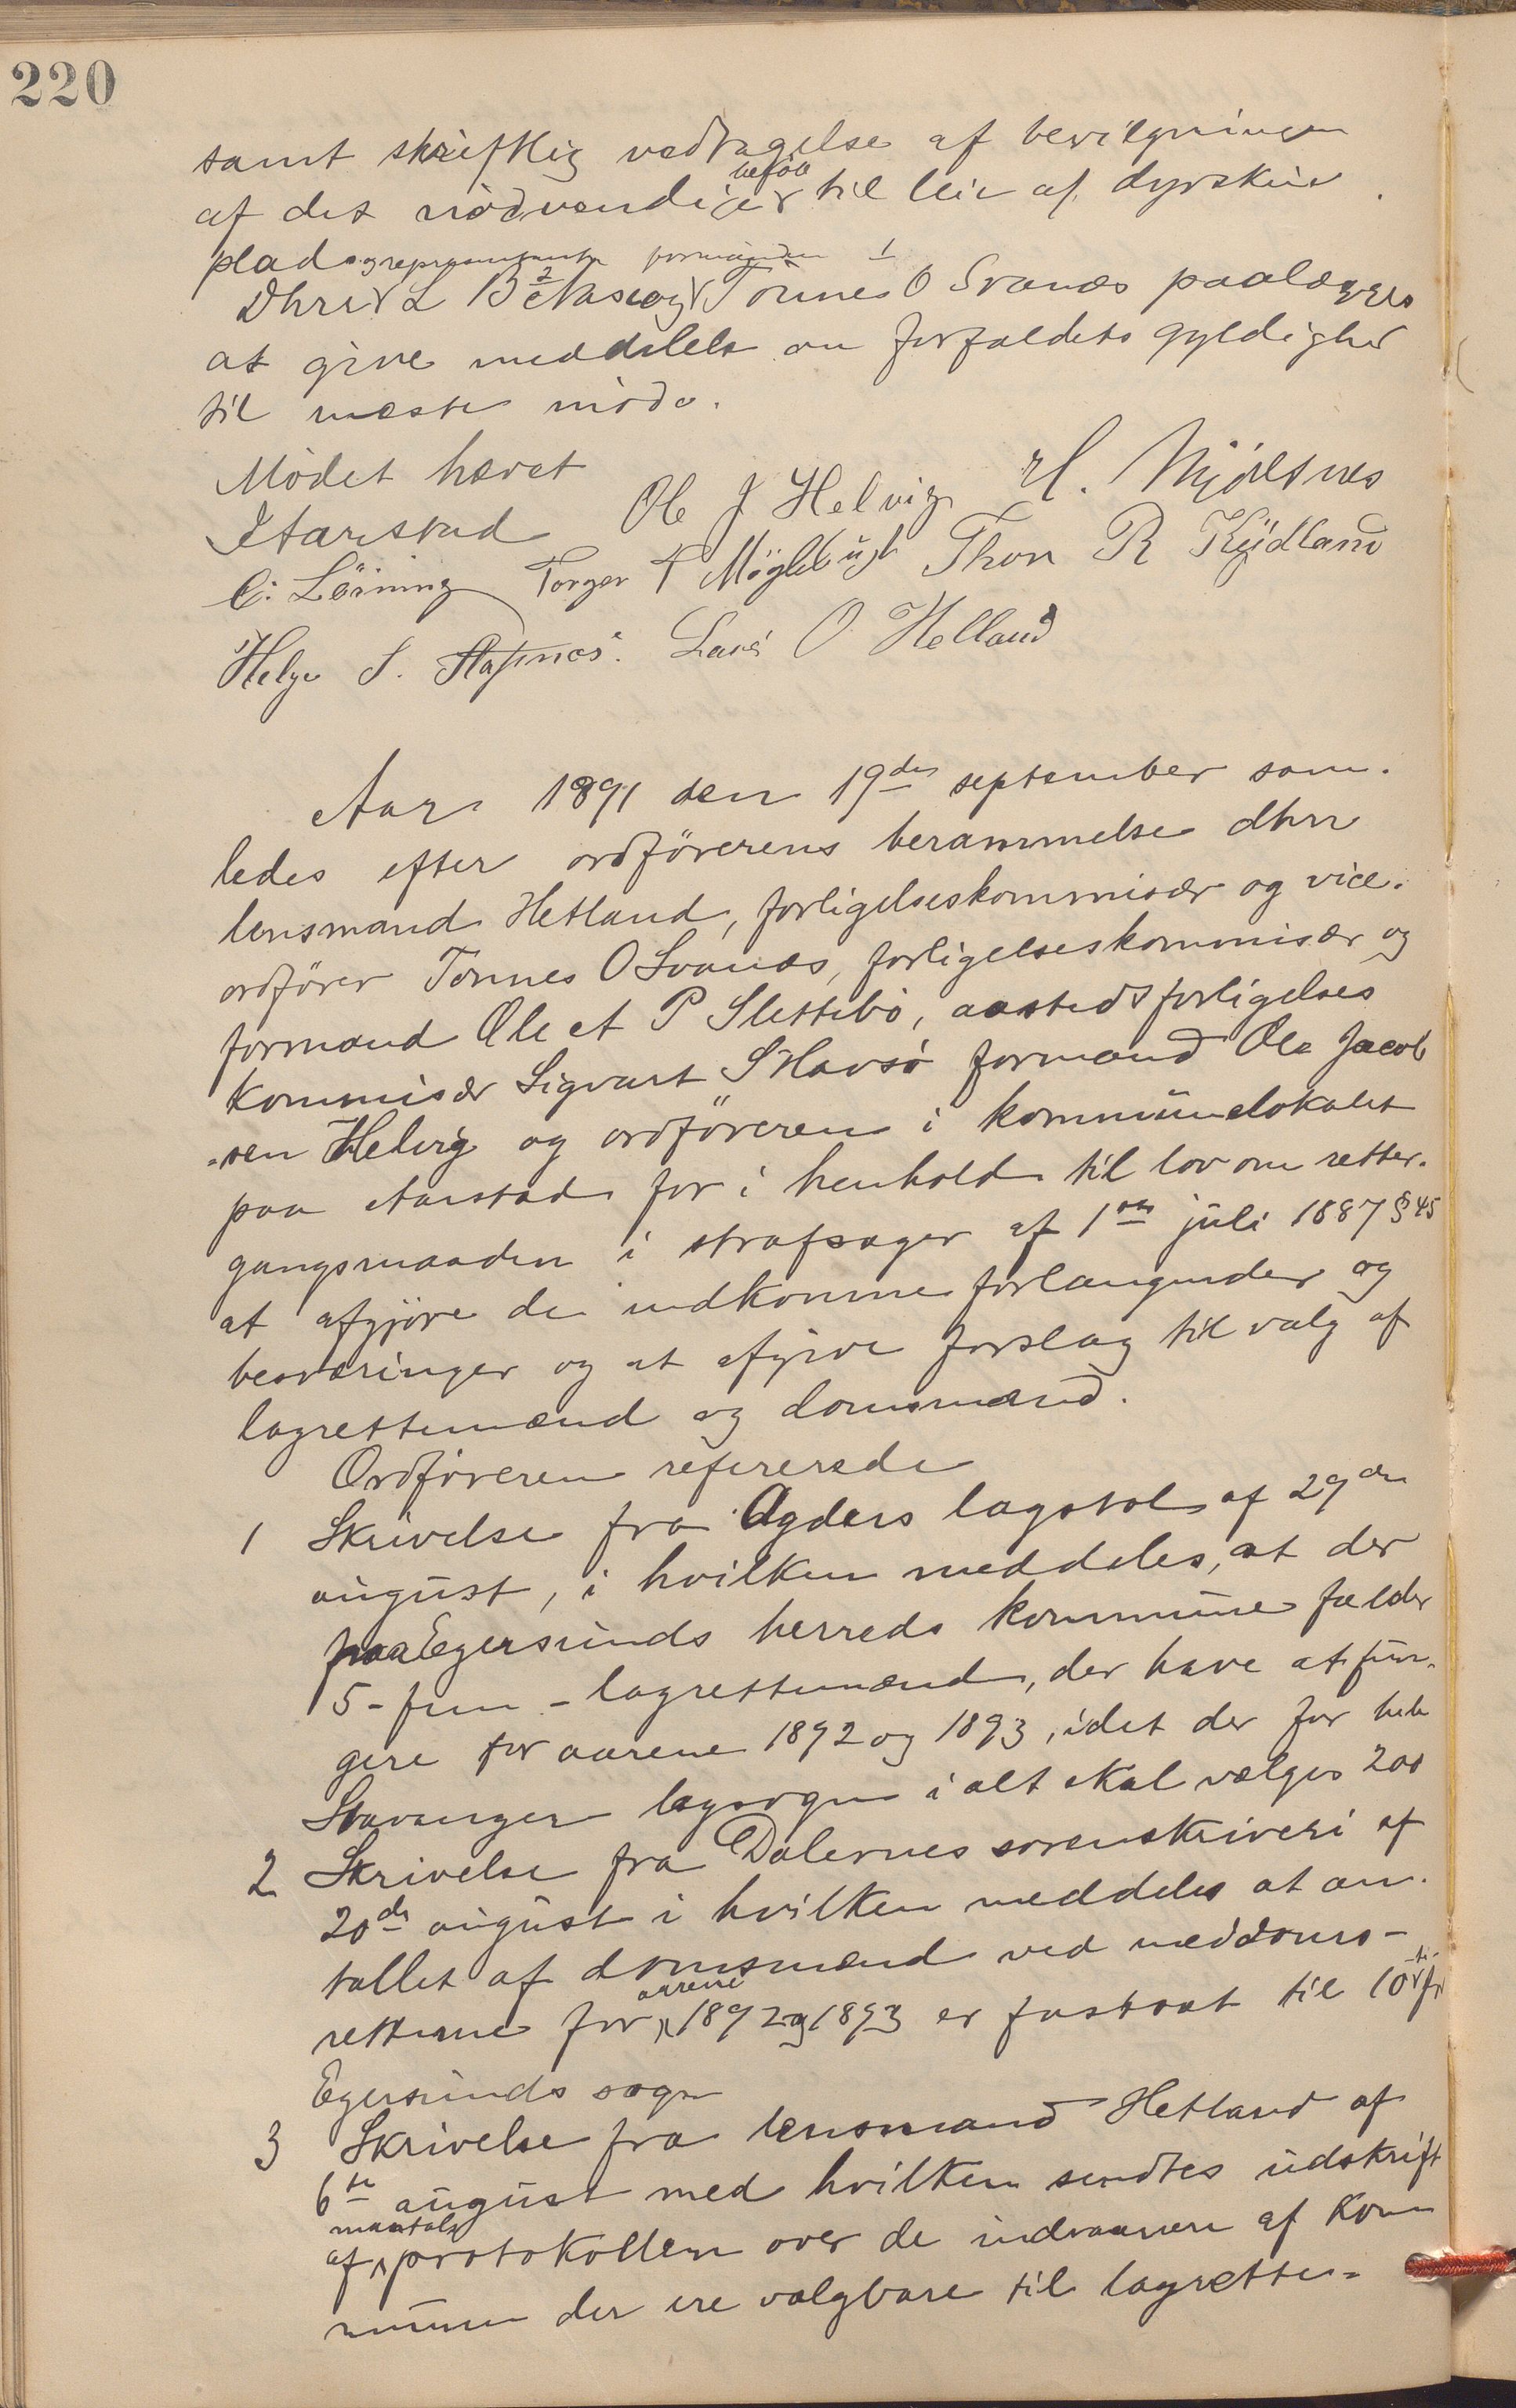 220
samt skriftlig vedtagelse af bevilgningen
af det nödvendige beløb til leie af dyrskue
plads
Dhrr repræsentant L B Aase og formanden Tönnes O Svanæs paalægges
at give meddelelse om forfaldets gyldighed
til næste möde.
Mödet hævet
Aarstad Ole J Helvig H. Mjölsnes
C. Lerning Torger T Möglebust Thore R Kydland
Helge S. Rafsnæs. Lars O Helland
Aar 1891 den 19de september sam-
ledes efter ordförerens berammelse dhrr
lensmand Hetland, forligelseskommisær og vice-
ordförer Tönnes O Svanæs, forligelseskommisær og
formand Ole A P Slettebö, aastedsforligelses
kommisær Sigvart S Havsö formand Ole Jacob
sen Helvig og ordföreren i kommunelokalet
paa Aarstad for i henhold til lov om retter-
gangsmaaden i strafsager af 1ste juli 1887 § 45
at afgjöre de indkomne forlangender og
besværinger og at afgive forslag til valg af
lagrettemænd og domsmænd.
Ordföreren refererede
1 Skrivelse fra Agders lagstol af 29de
august, i hvilken meddeles, at der
paa Egersunds herreds kommune falder
5 - fem - lagrettemænd, der have at fun-
gere for aarene 1892 og 1893, idet der for hele
Stavanger lagsogn i alt skal vælges 200
2 Skrivelse fra Dalernes sorenskriveri af
20de august i hvilken meddeles at an-
tallet af domsmænd ved meddoms-
retterne for aarene 1892 og 1893 er fastsat til 10 - ti - for
Egersunds sogn
3 Skrivelse fra lensmand Hetland af
6te august med hvilken sendtes udskrift
af mantalsprotokollen over de indvaanere af kom
munen der ere valgbare til lagrette-